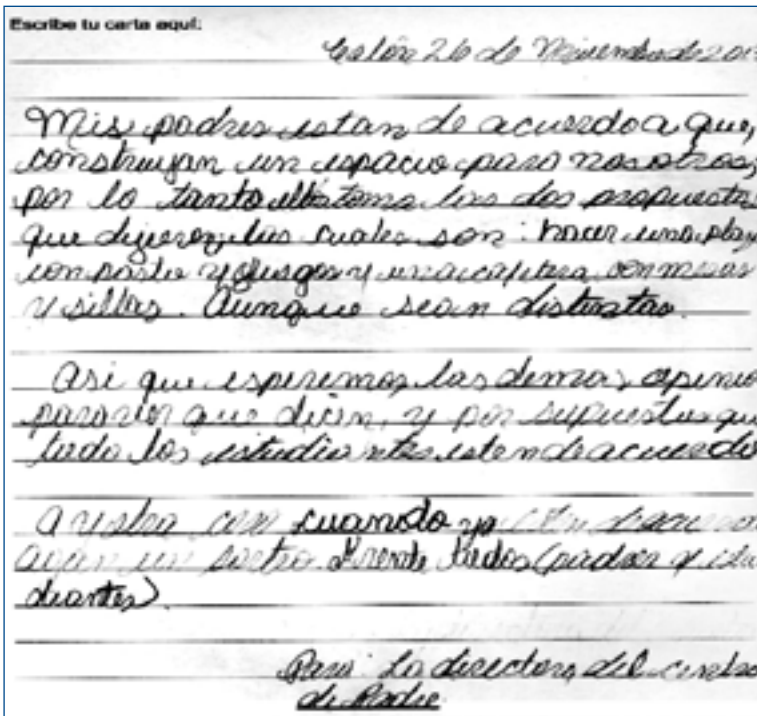 Escribe tu carta aquí:
26 de de 201
Mis padres estan de acuerdo a que,
construyan un espacio para nosotros,
por lo tanto las dos propuesta
que dijeron las cuales son: hacer una
con pasto y juegos y una con mesas
y sillas. Aunque sean distintas.
Asi que esperemos las demas opinio
para ver que dicen, y por supuesto que
todo los estudiantes esten de acuerdo
cuando ya
un frente todos (padres y estu
diantes).
Para: La directora del centro
de Padre